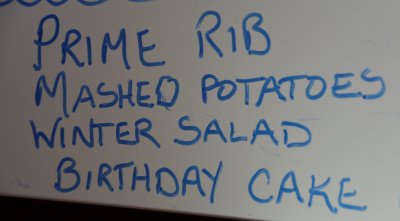 PRIME RIB
MASHED POTATOES
WINTER SALAD
BIRTHDAY CAKE